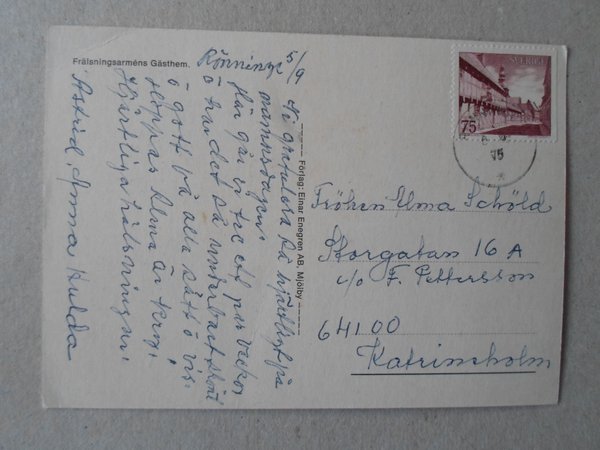 Frälsningsarméns Gästhem.
Rönninge 5/9
Vi gratulera så hjärtligt på
namnsdagen.
Här går vi tre ett par veckor
o har det så underbart skönt
o gott på alla sätt o vis.
Hoppas Alma är kry.
Hjärtliga hälsningar.
Astrid, Anna Hulda
Förlag: Einar Enegren AB, Mjölby
SVERIGE
75
75
Fröken Alma Schöld
Storgatan 16 A
c/o F. Pettersson
64100
Katrineholm